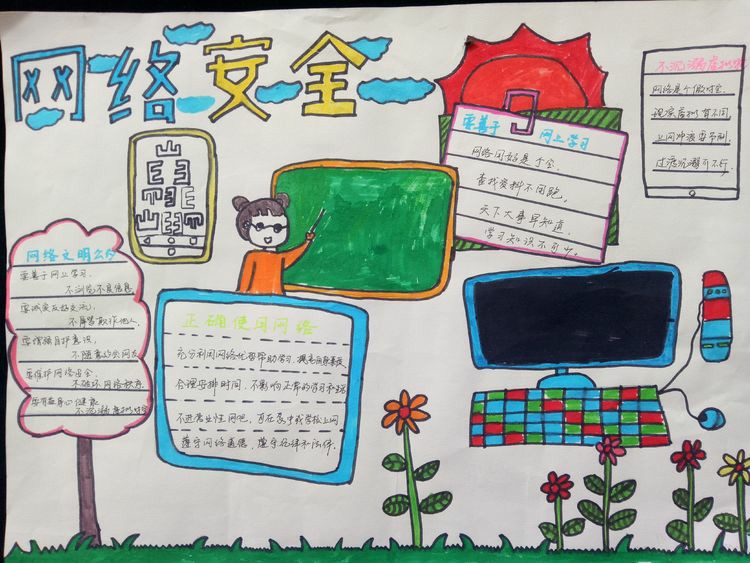 网络安全
网络文明公约
要善于网上学习，
不浏览不良信息。
要诚实友好交流，
不侮辱欺诈他人。
要增强自护意识，
不随意约会网友
要维护网络安全，
不破坏网络秩序。
要有益身心健康
不沉溺虚拟时空
正确使用网络
充分利用网络优势帮助学习，提高自身素质
合理安排时间，不影响正常的学习和生活
不进营业性网吧，可在家中或学校上网
遵守网络道德，遵守纪律和法律。
要善于 网上学习
网络同好是个宝，
查找资料不用跑，
天下大事早知道，
学习知识不可少。
不沉溺虚拟
网络是个假时空，
现实虚拟有不同，
上网冲浪要节制，
过度沉溺可不行，